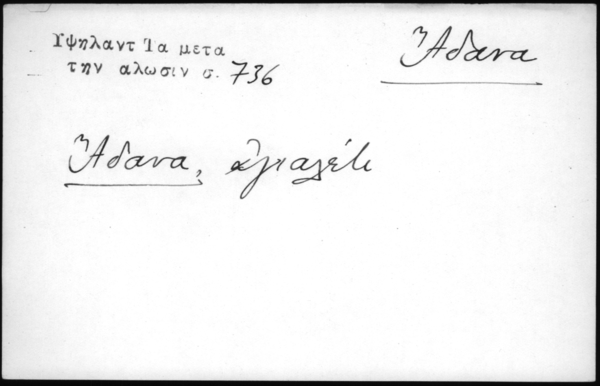 Υψηλαντ Τα μετα
την αλωσιν σ. 736
Ἄδανα
Ἄδανα, ἐγιαλέτι